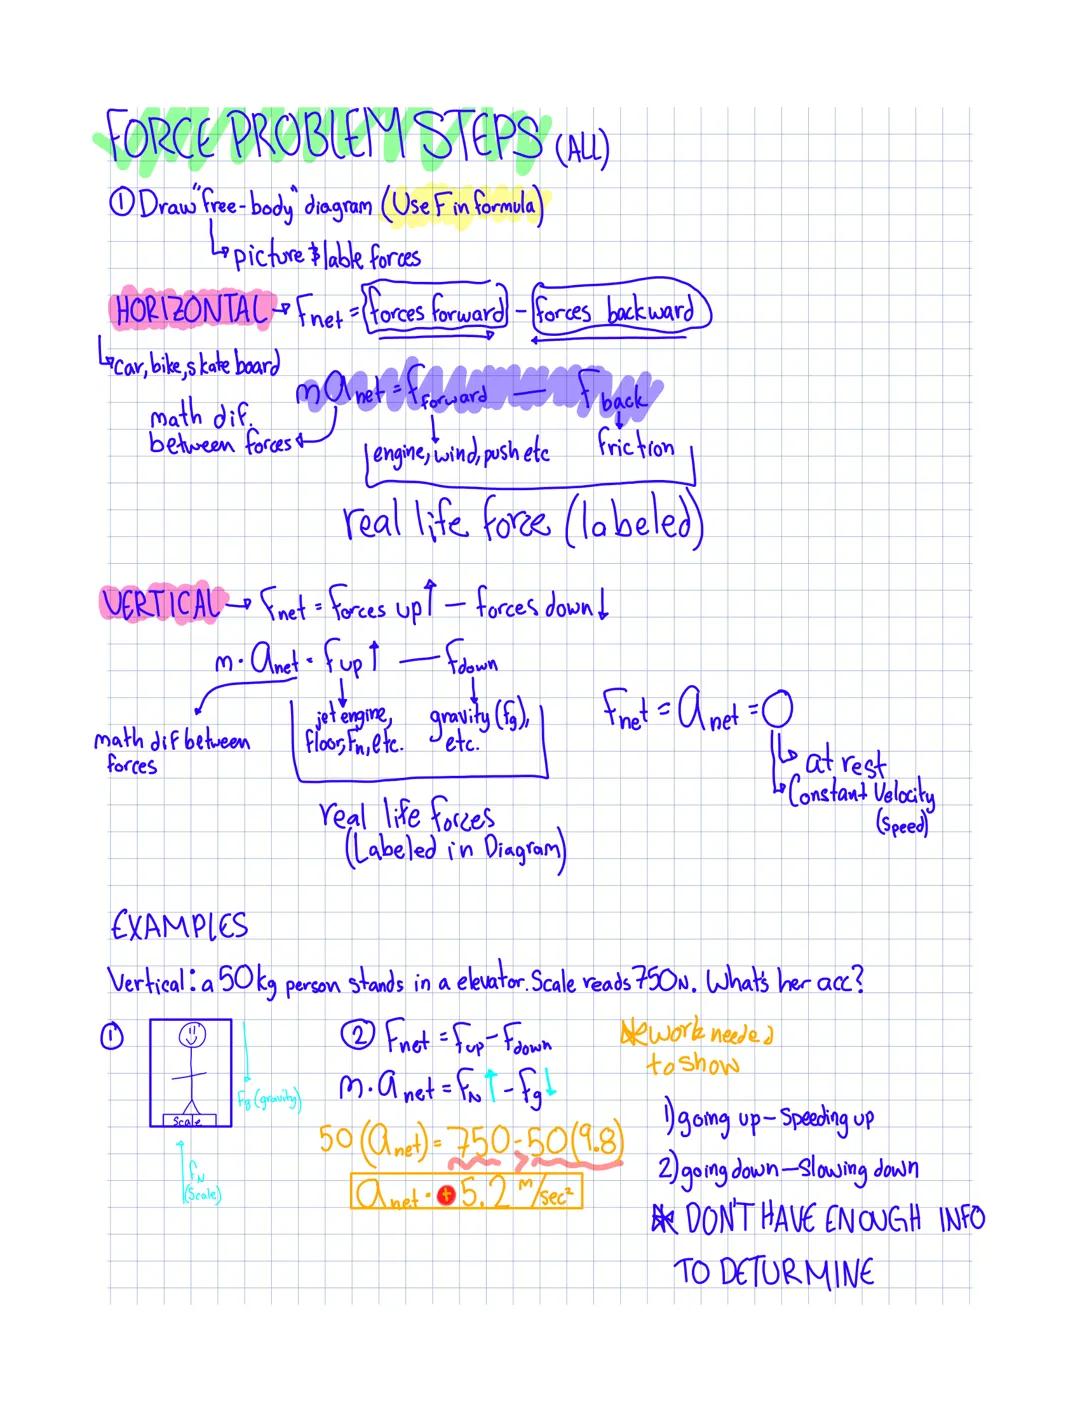 FORCE PROBLEM STEPS (ALL)
① Draw "free-body" diagram (Use F in formula)
↳ picture & lable forces
HORIZONTAL → Fnet = forces forward - forces backward
↳ car, bike, skate board
manet = fforward — Fback
math dif.
between forces
engine, wind, push etc
friction
real life force (labeled)
VERTICAL → Fnet = forces up ↑ — forces down ↓
m · anet = fup ↑ — fdown
math dif between
forces
jet engine,
floor, Fn, etc.
gravity (fg),
etc.
real life forces
(Labeled in Diagram)
Fnet = anet = 0
↳ at rest
↳ Constant Velocity
(speed)
EXAMPLES
Vertical: a 50kg person stands in a elevator. Scale reads 750N. What's her acc?
①
Scale
Fg (gravity)
FN
(Scale)
② Fnet = fup - Fdown
m · anet = FN ↑ - Fg ↓
50 (anet) = 750 - 50(9.8)
anet = + 5.2 m/sec²
* work needed
to show
1) going up - Speeding up
2) going down - Slowing down
* DON'T HAVE ENOUGH INFO
TO DETURMINE